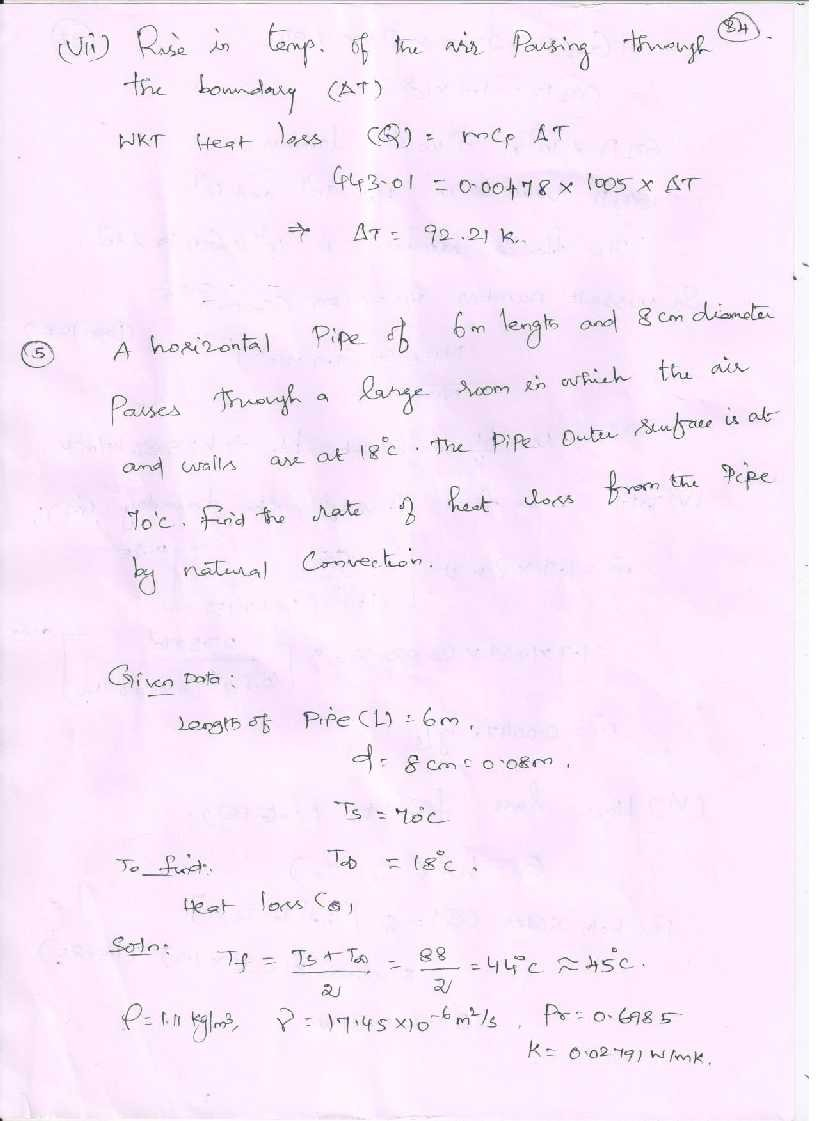 34.
(Vii) Rise in temp. of the air Passing through
the boundary (ΔT)
WKT Heat loss (Q) = mCp ΔT
443.01 = 0.00478 × 1005 × ΔT
⇒ ΔT = 92.21 K.
5 A horizontal Pipe of 6m length and 8cm diameter
Passes through a large room in which the air
and walls are at 18°c. The Pipe Outer surface is at
70°c. Find the rate of heat loss from the Pipe
by natural Convection.
Given Data:
Length of Pipe (L) = 6m,
d = 8cm = 0.08m.
Ts = 70°C
To find: T∞ = 18°c.
Heat loss (Q)
Soln: Tf = Ts + T∞ / 2 = 88 / 2 = 44°c ≈ 45°c.
ρ = 1.11 kg/m³, γ = 17.45 × 10⁻⁶ m²/s, Pr = 0.6985
K = 0.02791 W/mK.